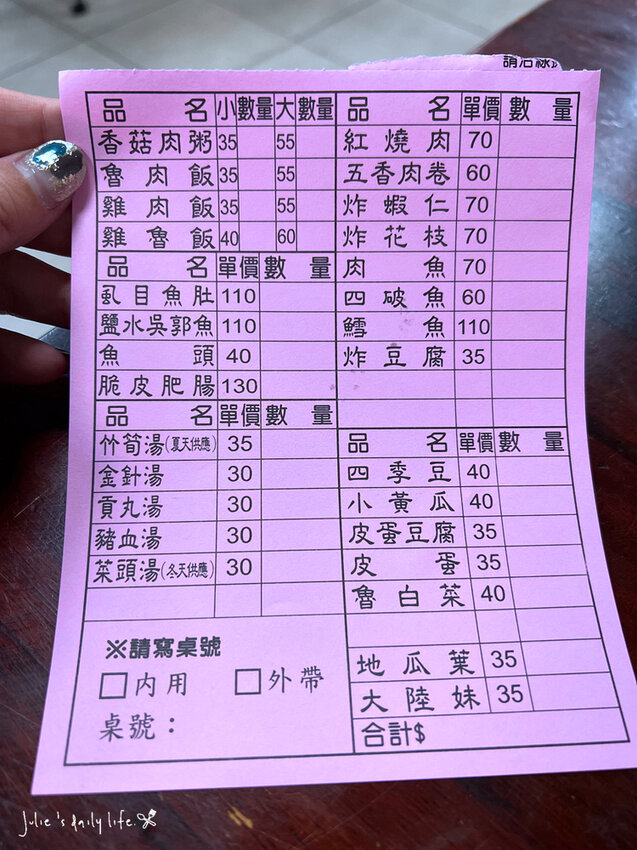 請沿線
品 名 小 數量 大 數量
香菇肉粥 35 55
魯肉飯 35 55
雞肉飯 35 55
雞魯飯 40 60
品 名 單價 數 量
虱目魚肚 110
鹽水吳郭魚 110
魚頭 40
脆皮肥腸 130
品 名 單價 數 量
竹筍湯(夏天供應) 35
金針湯 30
貢丸湯 30
豬血湯 30
菜頭湯(冬天供應) 30
※請寫桌號
□內用 □外帶
桌號：
品 名 單價 數 量
紅燒肉 70
五香肉卷 60
炸蝦仁 70
炸花枝 70
肉魚 70
四破魚 60
鱈魚 110
炸豆腐 35
品 名 單價 數 量
四季豆 40
小黃瓜 40
皮蛋豆腐 35
皮蛋 35
魯白菜 40
地瓜葉 35
大陸妹 35
合計$
Julie's daily life.